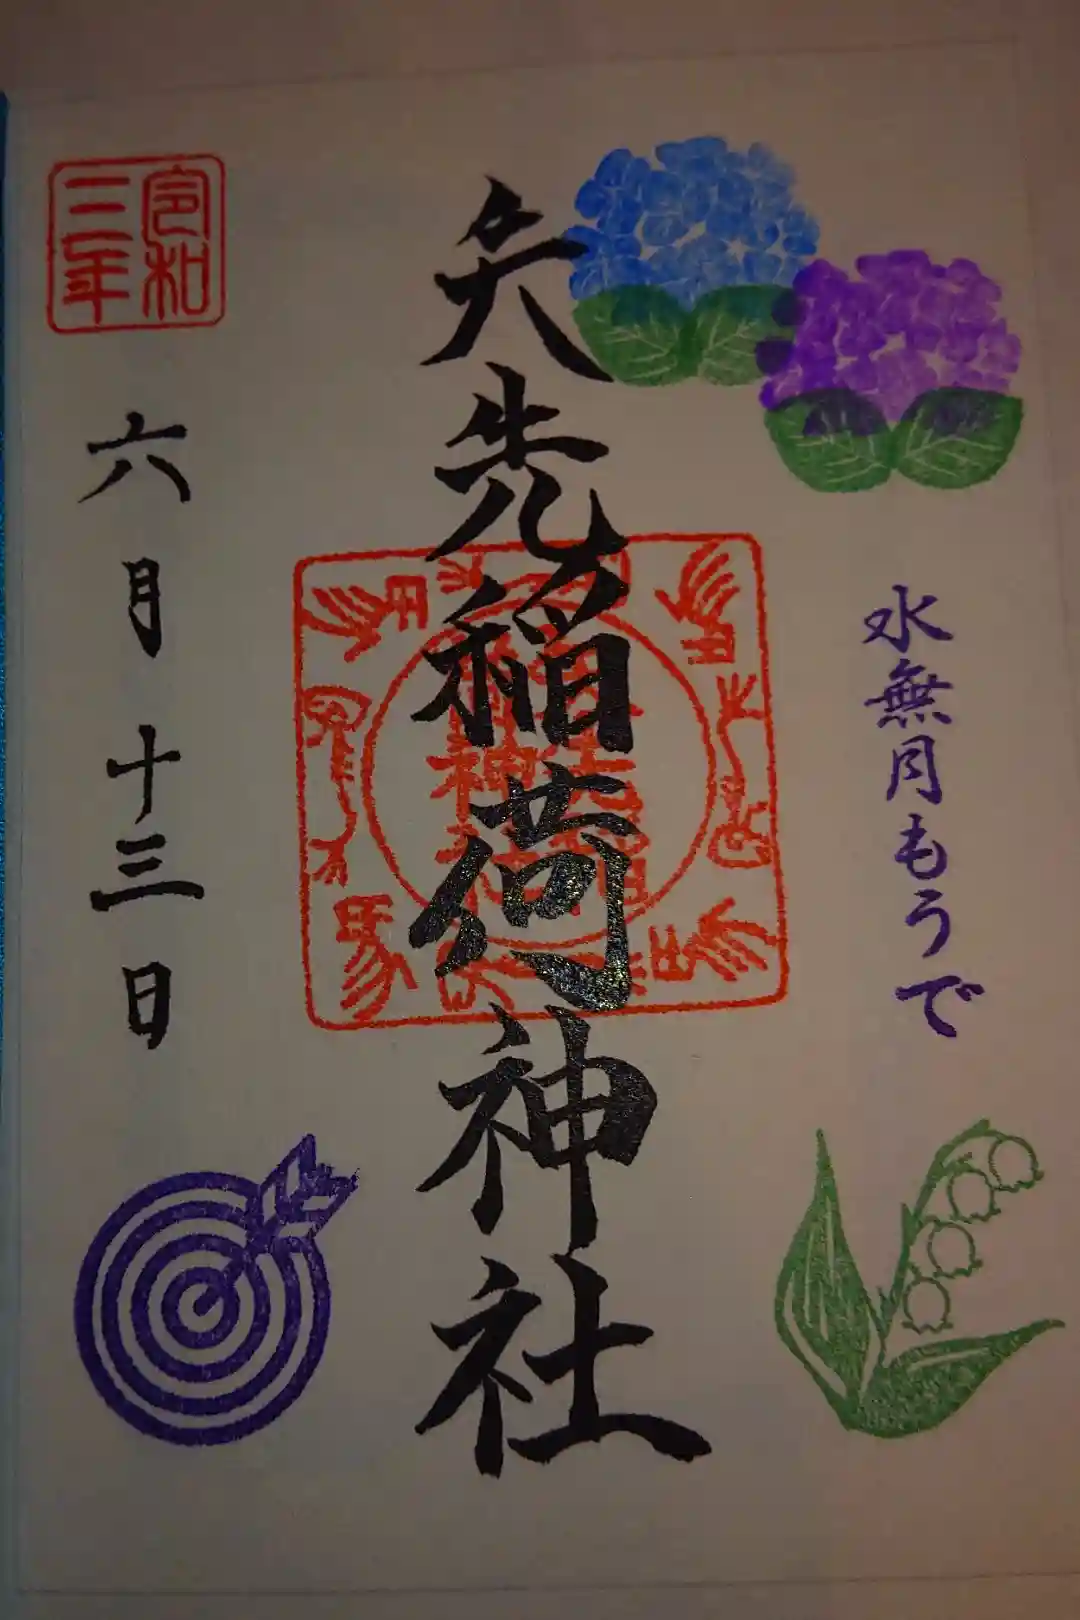 水無月もうで
矢先稲荷神社
令和
三年
六月十三日